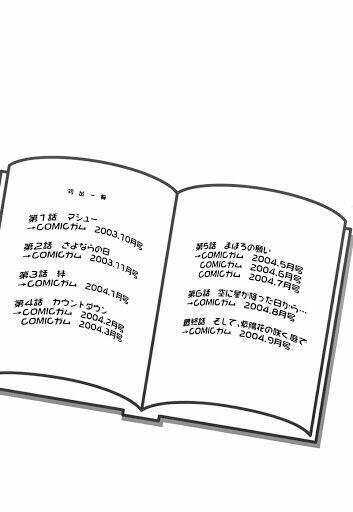 初出一覧
第1話 マシュー
→COMICガム 2003.10月号
第2話 さよならの日
→COMICガム 2003.11月号
第3話 絆
→COMICガム 2004.1月号
第4話 カウントダウン
→COMICガム 2004.2月号
COMICガム 2004.3月号
第5話 まほろの願い
→COMICガム 2004.5月号
COMICガム 2004.6月号
COMICガム 2004.7月号
第6話 空に星が降った日から…
→COMICガム 2004.8月号
最終話 そして、紫陽花の咲く庭で
→COMICガム 2004.9月号